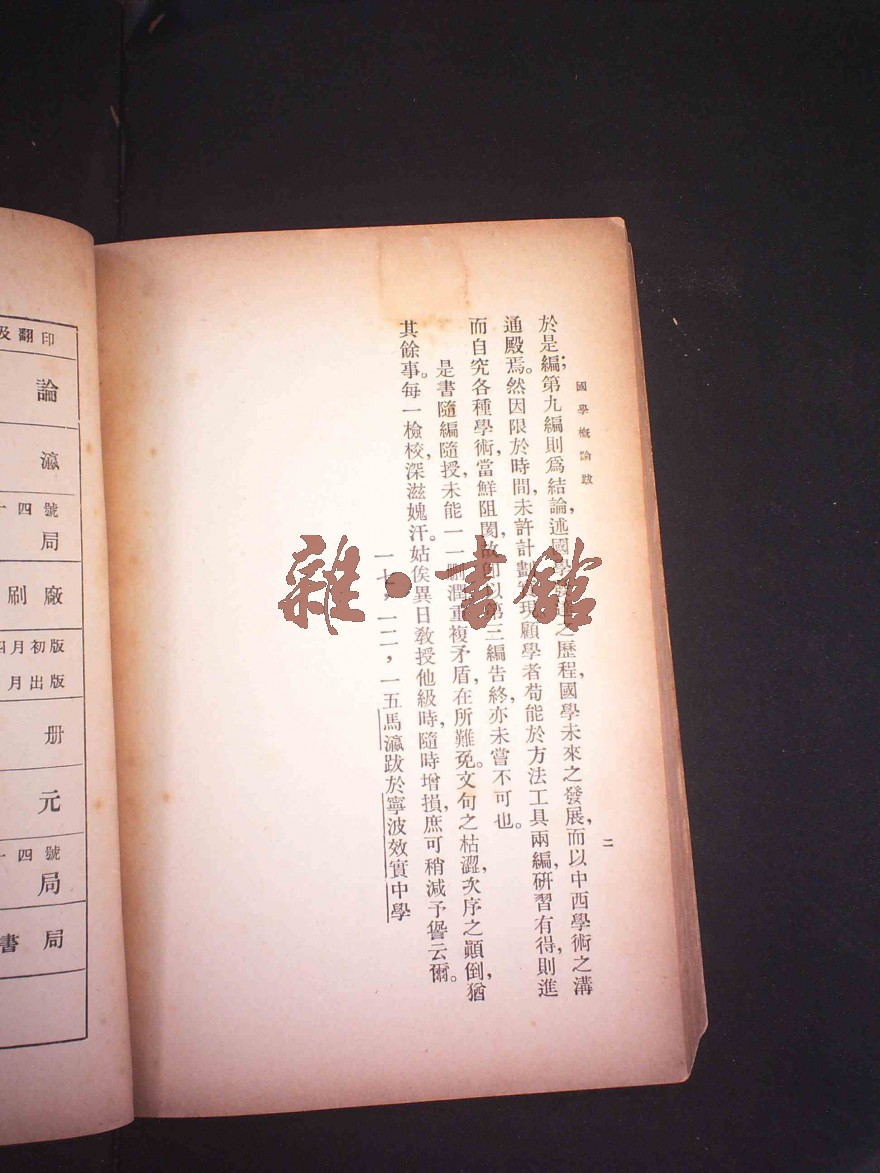 國學概論跋
二
於是編；第九編則爲結論，述國學之歷程，國學未來之發展，而以中西學術之溝
通殿焉。然因限於時間，未許計劃實現，顧學者苟能於方法工具兩編，研習有得，則進
而自究各種學術，當鮮阻閡，故卽以第三編告終，亦未嘗不可也。
是書隨編隨授，未能一一刪潤，重複矛盾，在所難免。文句之枯澀，次序之顚倒，猶
其餘事。每一檢校，深滋媿汗。姑俟異日敎授他級時，隨時增損，庶可稍減予眚云爾。
一七，一二，一五馬瀛跋於寧波效實中學
雜·書館
及翻印
論
瀛
十四號
局
刷廠
四月初版
月出版
册
元
十四號
局
書局